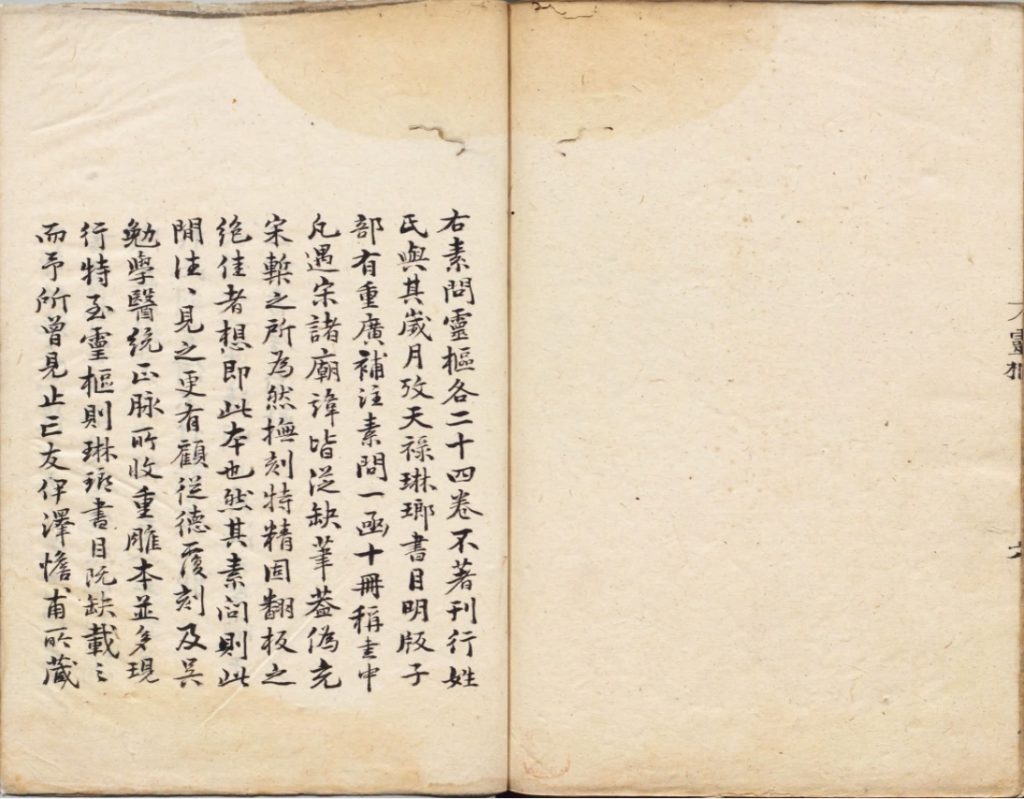 右素問靈樞各二十四卷不著刊行姓
氏與其歲月攷天祿琳瑯書目明版子
部有重廣補注素問一函十冊稱書中
凡遇宋諸廟諱皆從缺筆葢僞充
宋槧之所為然撫刻特精固翻板之
絶佳者想即此本也然其素問則此
間往〻見之更有顧從德覆刻及吳
勉學醫統正脉所收重雕本並多現
行特至靈樞則琳瑯書目既缺載之
而予所曾見止亡友伊澤憺甫所藏
靈樞